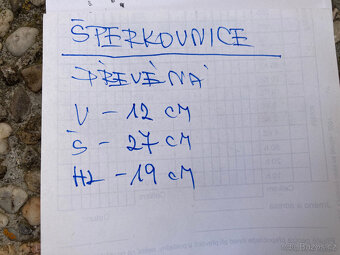 ŠPERKOVNICE
DŘEVĚNÁ
V - 12 CM
Š - 27 CM
HL - 19 CM